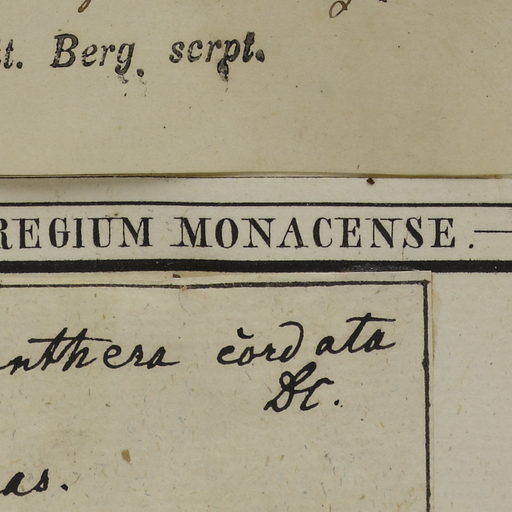 tt. Berg. scrpt.
REGIUM MONACENSE.
nthera cordata
DC.
as.